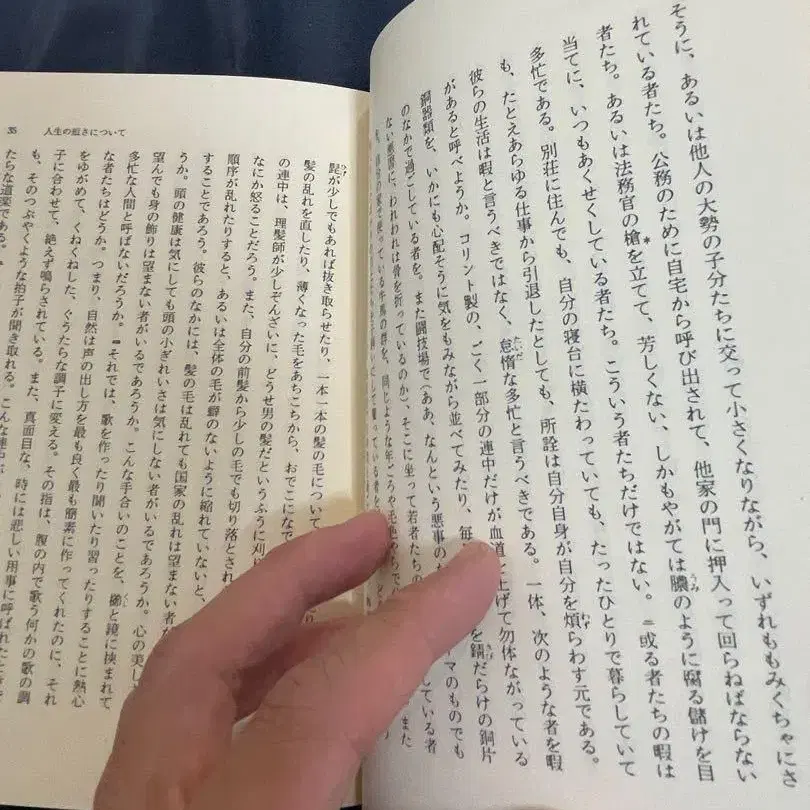 そうに、あるいは他人の大勢の子分たちに交って小さくなりながら、いずれももみくちゃにさ
れている者たち。公務のために自宅から呼び出されて、他家の門に押入って回らねばならない
者たち。あるいは法務官の槍*を立てて、芳しくない、しかもやがては膿うみのように腐る儲けを目
当てに、いつもあくせくしている者たち。こういう者たちだけではない。=或る者たちの暇は
多忙である。別荘に住んでも、自分の寝台に横たわっていても、たったひとりで暮らしていて
も、たとえあらゆる仕事から引退したとしても、所詮は自分自身が自分を煩わらわす元である。
彼らの生活は暇と言うべきではなく、怠惰たいだな多忙と言うべきである。一体、次のような者を暇
があると呼べようか。コリント製の、ごく一部分の連中だけが血道を上げて勿体ながっている
銅器類を、いかにも心配そうに気をもみながら並べてみたり、毎 を錆さびだらけの銅片
のなかで過ごしている者を。また闘技場で(ああ、なんという悪事のた ーマのものでも
ない悪習に、われわれは骨を折っているのか)、そこに坐って若者たちの している者
同じような年ごろや毛色 また
35 人生の短さについて
髭ひげが少しでもあれば抜き取らせたり、一本一本の髪の毛について
髪の乱れを直したり、薄くなった毛をあちこちから、おでこになで
の連中は、理髪師が少しぞんざいに、どうせ男の髪だというふうに刈り
なにか怒ることだろう。また、自分の前髪から少しの毛でも切り落とされ
順序が乱れたりすると、あるいは全体の毛が癖のないように縮れていないと、
することであろう。彼らのなかには、髪の毛は乱れても国家の乱れは望まない者が
うか。頭の健康は気にしても頭の小ぎれいさは気にしない者がいるであろうか。心の美し
望んでも身の飾りは望まない者がいるであろうか。こんな手合いのことを、櫛くしと鏡に挟まれて
多忙な人間と呼ばないだろうか。=それでは、歌を作ったり聞いたり習ったりすることに熱心
な者たちはどうか。つまり、自然は声の出し方を最も良く最も簡素に作ってくれたのに、それ
をゆがめて、くねくねした、ぐうたらな調子に変える。その指は、腹の内で歌う何かの歌の調
子に合わせて、絶えず鳴らされている。また、真面目な、時には悲しい用事に呼ばれたときで
も、そのつぶやくような拍子が聞き取れる。こんな連中が
たらな道楽である。